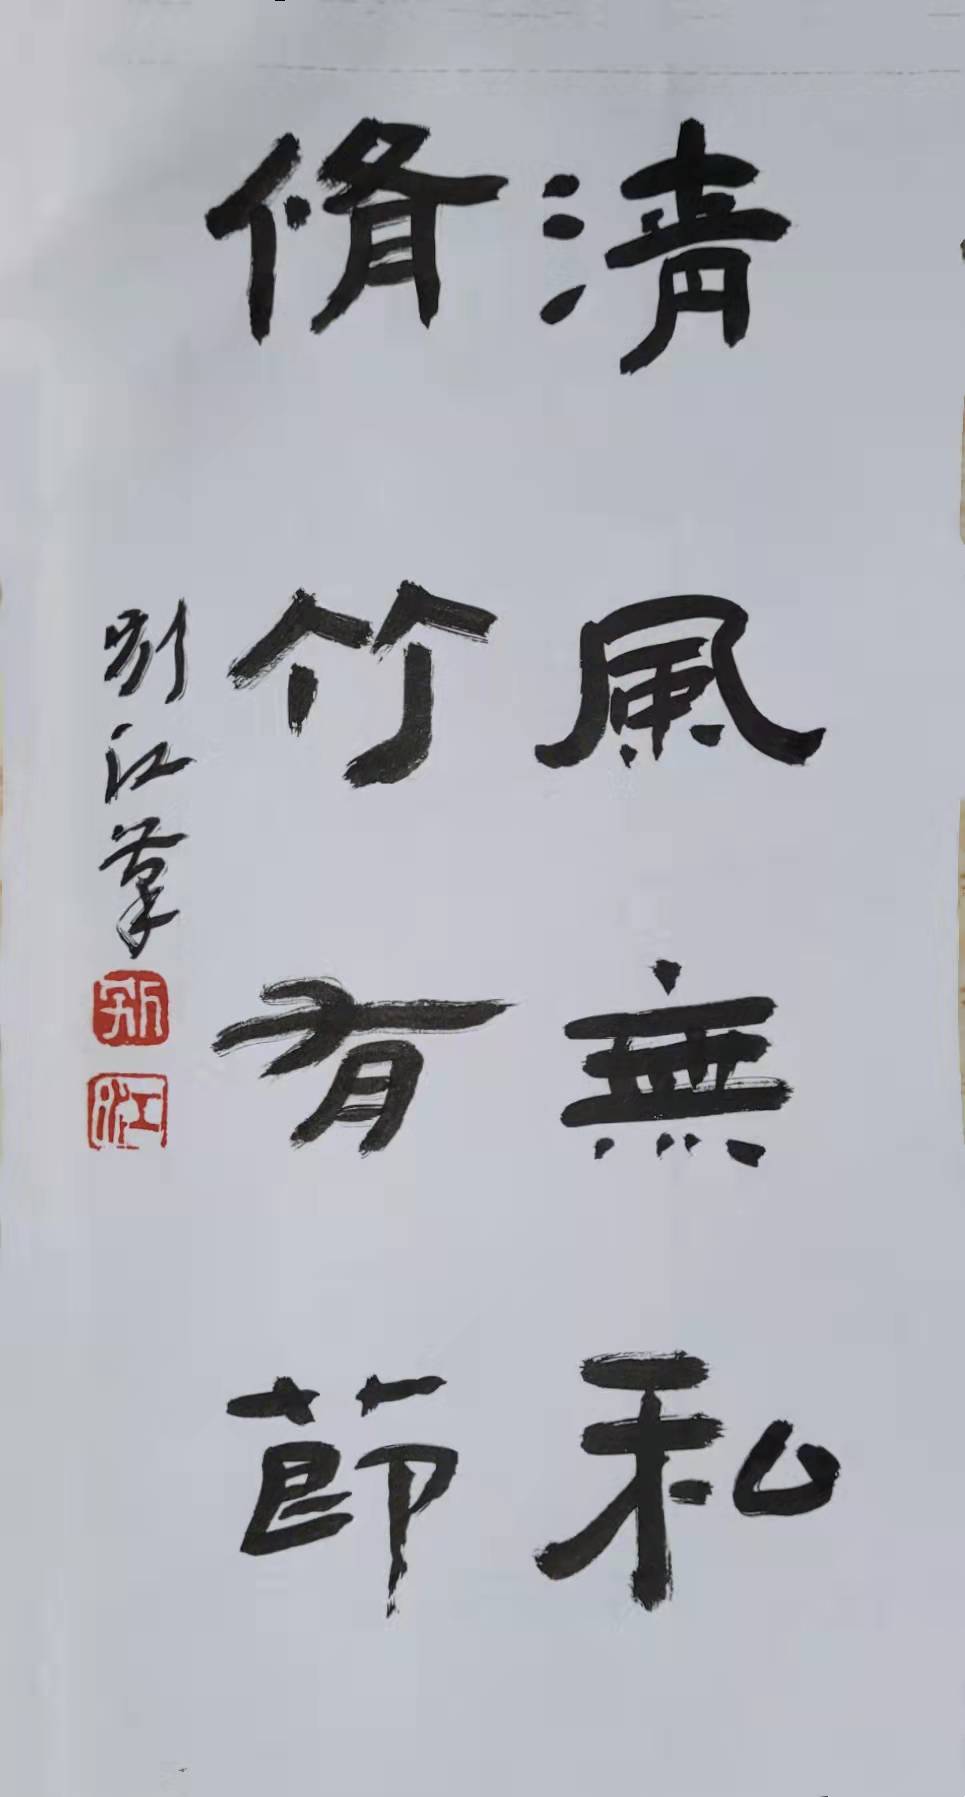 清風無私
脩竹有節
劉江筆
劉
江